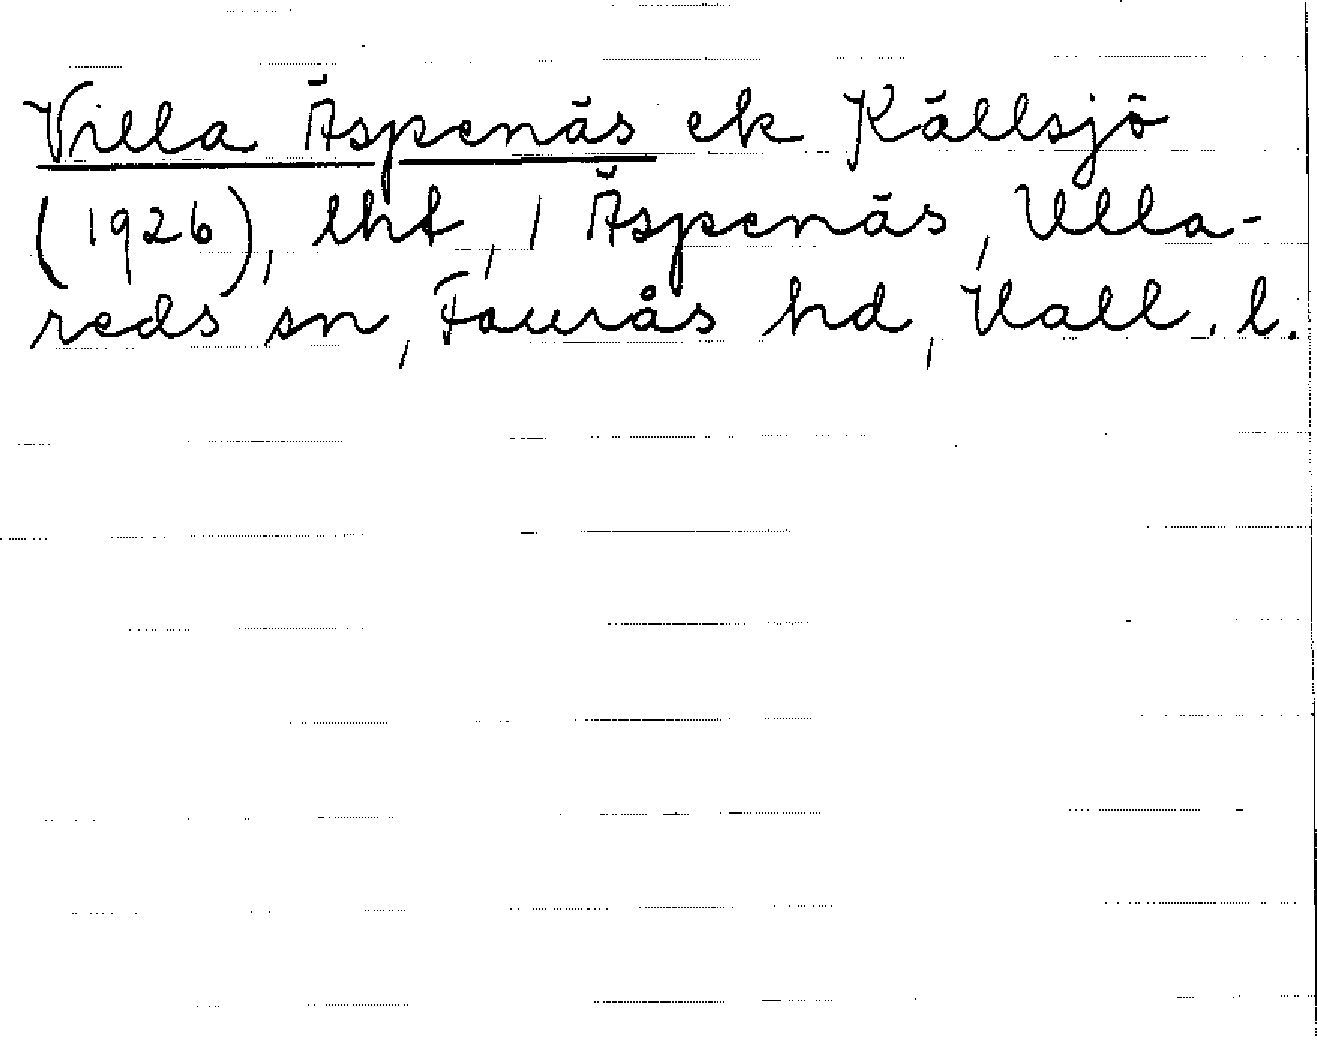 Villa Äspenäs ek Källsjö
(1926), lht, 1 Äspenäs, Ulla-
reds sn, Faurås hd, Hall. l.